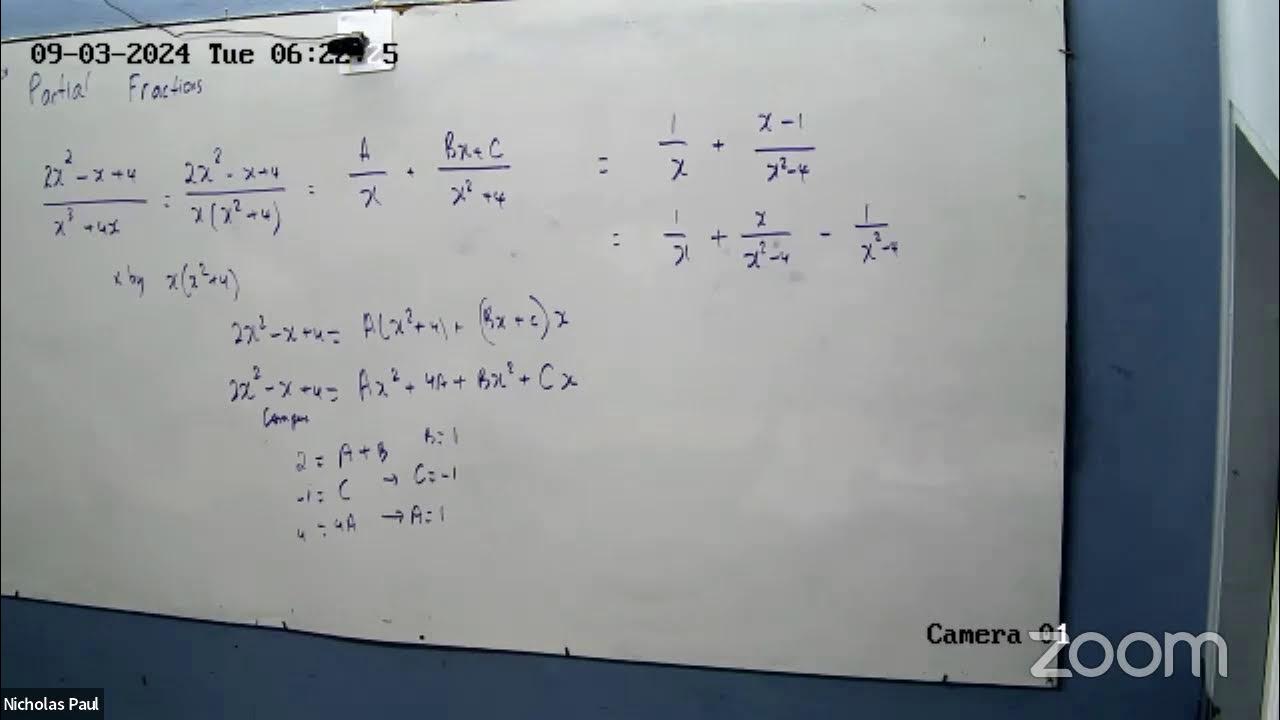 09-03-2024 Tue 06:22:25
Partial Fractions
(2x² - x + 4)/(x³ + 4x) = (2x² - x + 4)/(x(x² + 4)) = A/x + (Bx + C)/(x² + 4) = 1/x + (x - 1)/(x² - 4)
= 1/x + x/(x² - 4) - 1/(x² - 4)
x by x(x² + 4)
2x² - x + 4 = A(x² + 4) + (Bx + c)x
2x² - x + 4 = Ax² + 4A + Bx² + Cx
2 = A + B B = 1
-1 = C → C = -1
4 = 4A → A = 1
Camera 01
zoom
Nicholas Paul